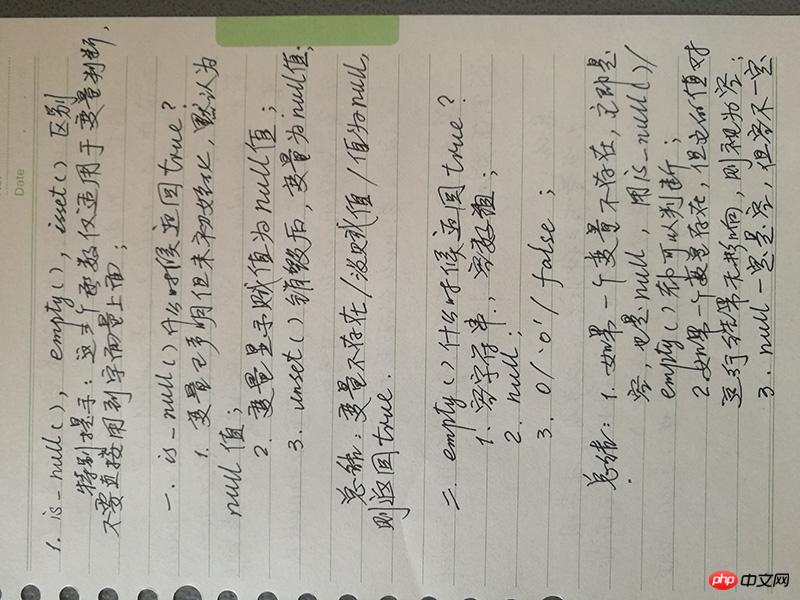 1. is_null(), empty(), isset() 区别
特别提示: 这三个函数仅适用于变量判断,
不要直接用到字面量上面;
一. is_null() 什么时候返回 true?
1. 变量已声明但未初始化, 默认为
null 值;
2. 变量显示赋值为 null 值;
3. unset() 销毁后, 变量为 null 值;
总结: 变量不存在/没赋值/值为 null,
则返回 true.
二. empty() 什么时候返回 true?
1. 空字符串, 空数组;
2. null;
3. 0/'0'/false;
总结: 1. 如果一个变量不存在, 它即是
空, 也是 null, 用 is_null()/
empty() 都可以判断;
2. 如果一个变量存在, 但它的值对
运行结果无影响, 则视为空;
3. null 一定是空, 但空不一定
Date
php 中文网